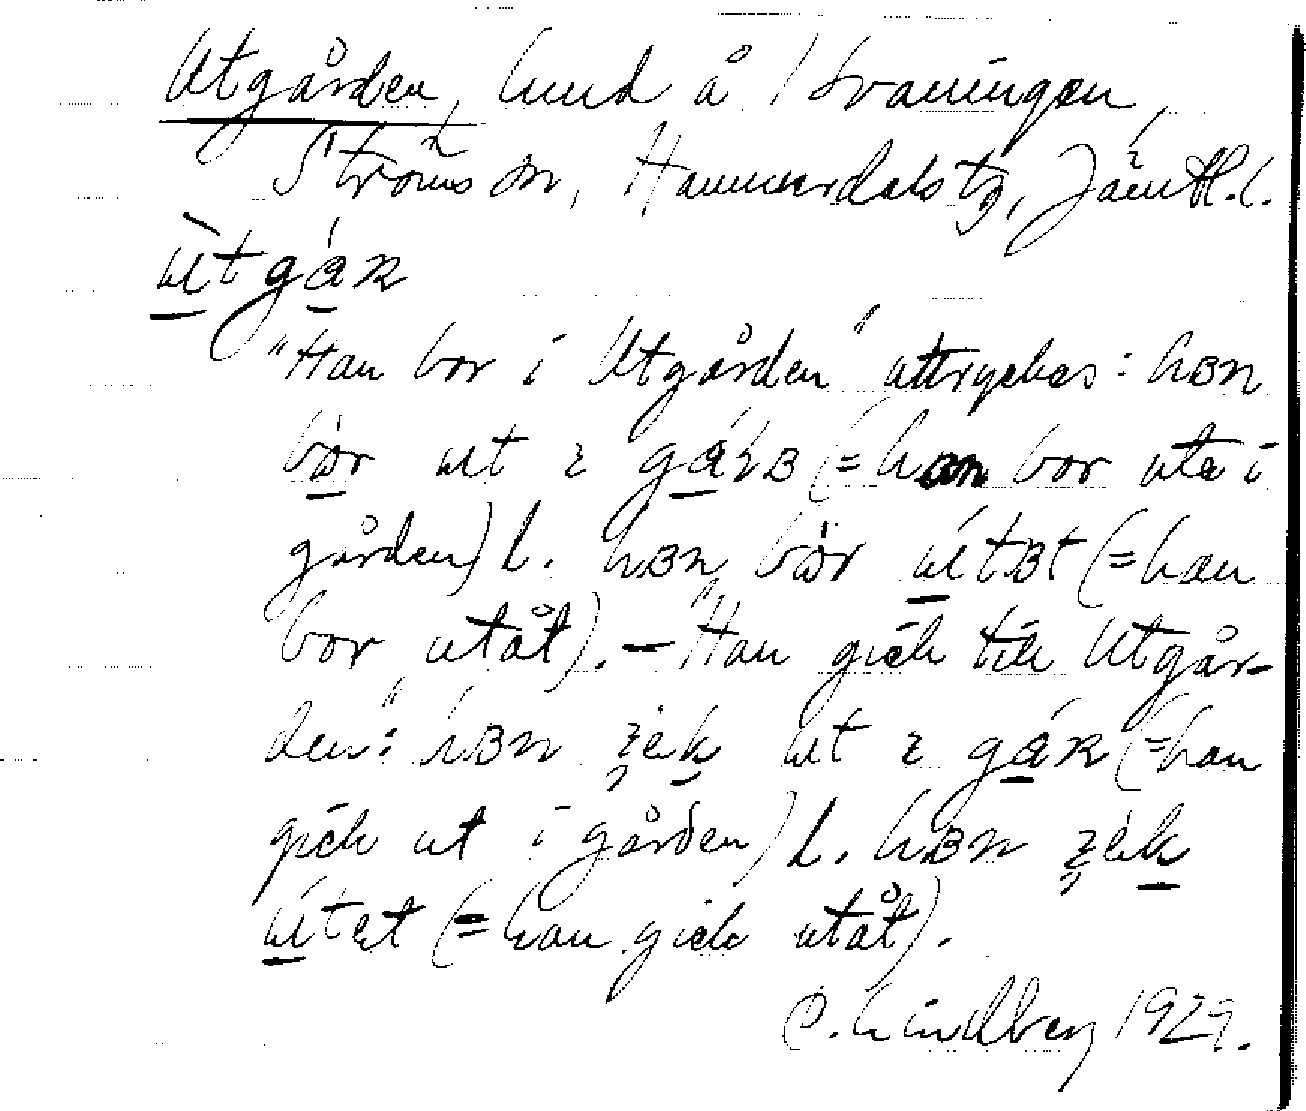 Utgården, lund å Svaningen,
Ströms sn, Hammerdals tg, Jämtl. l.
ùtgáʀ
"Han bor i Utgården" uttryckes: hʙn
bör ut ɩ gárʙ (= han bor ute i
gården) l. hʙn bör útʙt (= han
bor utåt). – "Han gick till Utgår-
den": hʙn ut ɩ gáʀ (= han
gick ut i gården) l. hʙn
útet (= han gick utåt).
C. Lindberg 1929.